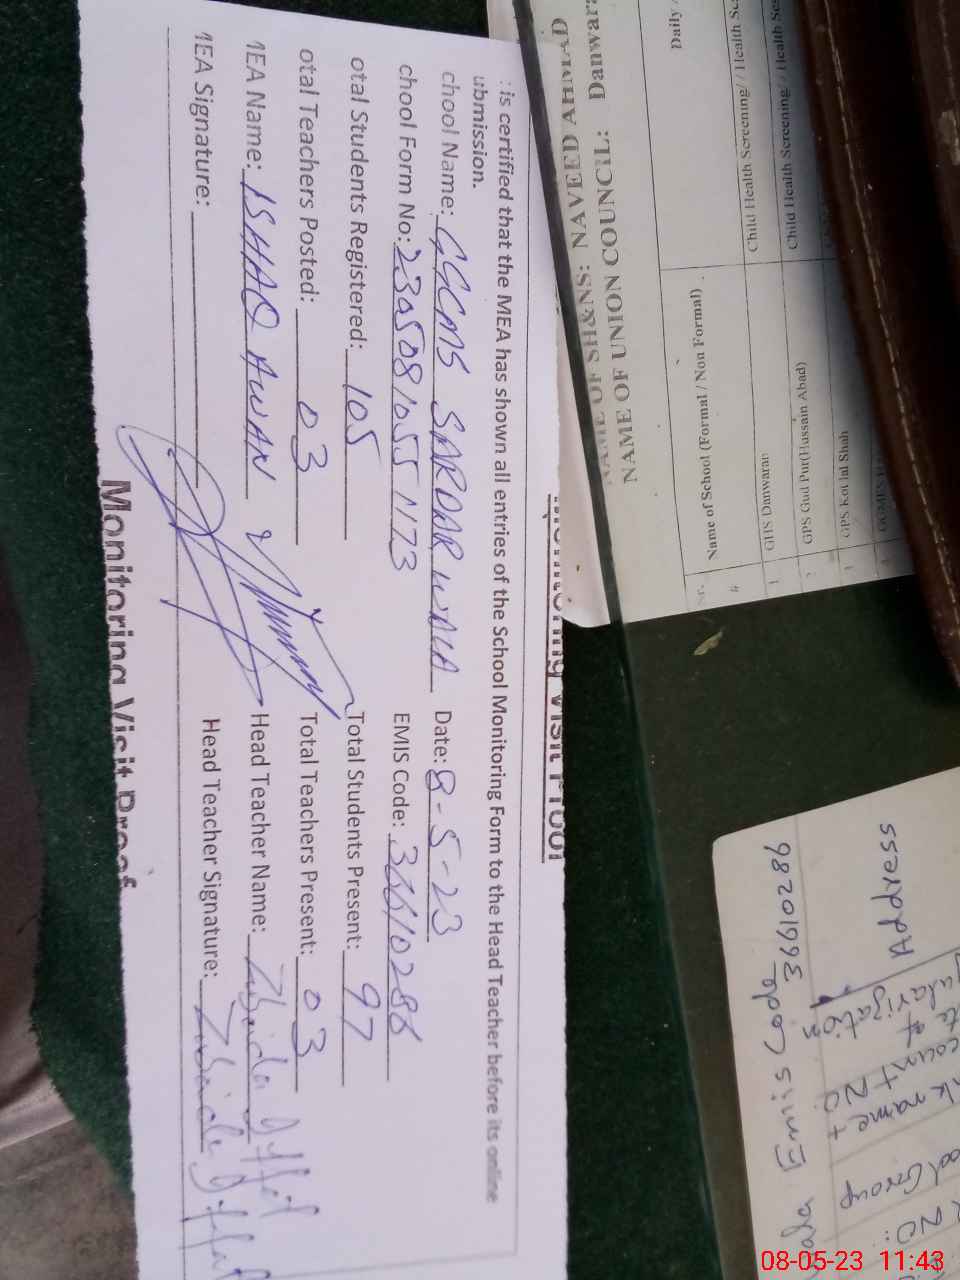 Monitoring Visit Proof
is certified that the MEA has shown all entries of the School Monitoring Form to the Head Teacher before its online
ubmission.
chool Name: GGCMS SARDAR WALA Date: 8-5-23
chool Form No: 23050810551173 EMIS Code: 36610286
otal Students Registered: 105 Total Students Present: 97
otal Teachers Posted: 03 Total Teachers Present: 03
MEA Name: ISHAQ AWAN Head Teacher Name: Zubaida
MEA Signature: Head Teacher Signature: Zubaida
Monitoring Visit Proof
NAME OF SH&NS: NAVEED AHMAD
NAME OF UNION COUNCIL: Danwar
Daily
Name of School (Formal / Non Formal)
#
1 GHS Danwaran Child Health Screening / Health Se
2 GPS Gud Pur(Hussain Abad) Child Health Screening / Health Se
GPS Kot Jal Shah
Address
Emis Code 36610286
k name +
count NO.
te of
gularization
od Group
NO.
08-05-23 11:43